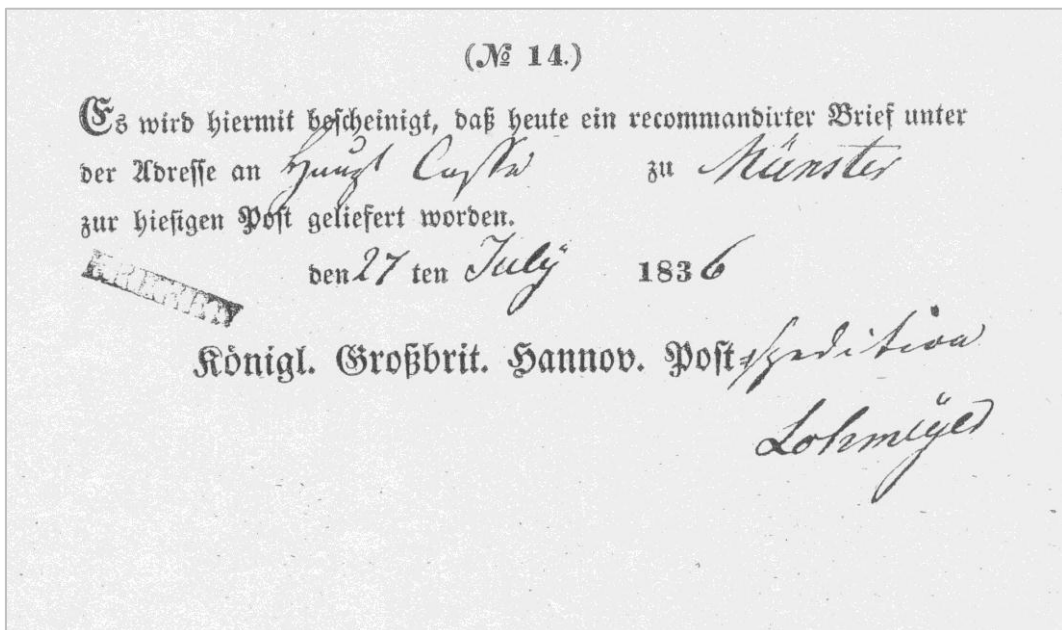 (№ 14.)
Es wird hiermit bescheinigt, daß heute ein recommandirter Brief unter
der Adresse an Haupt Casse zu Münster
zur hiesigen Post geliefert worden.
den 27 ten July 1836
Königl. Großbrit. Hannov. Post-spedition
Lohmeÿer